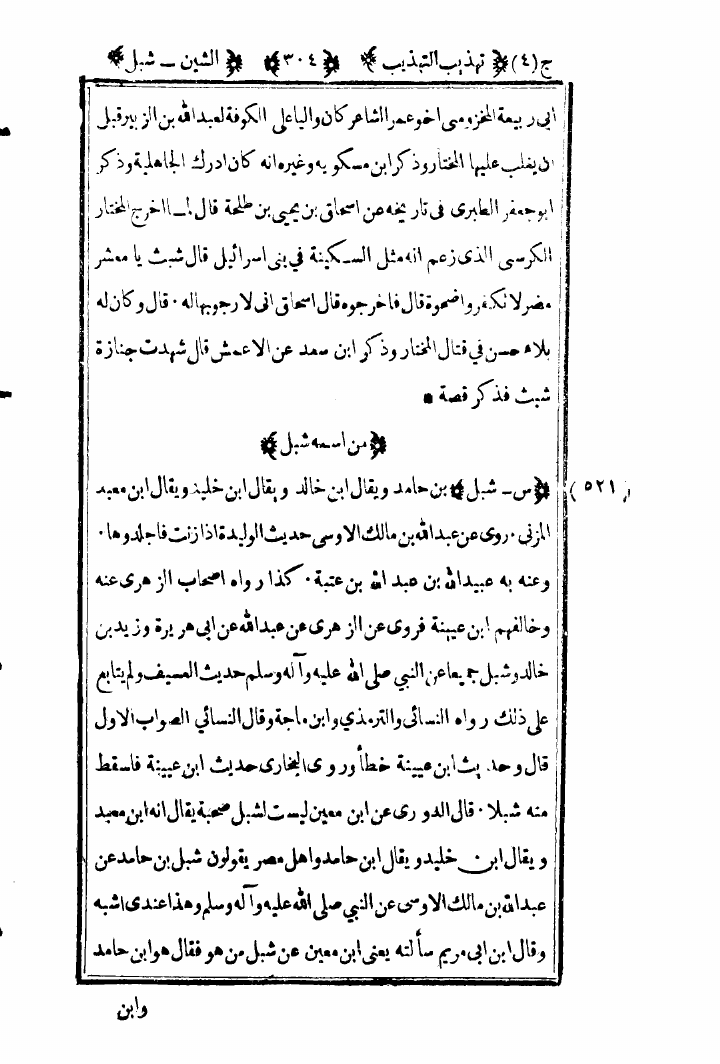 ج (٤) ﴿ تهذيب التهذيب ﴾ ﴿ ٣٠٤ ﴾ ﴿ الشين ـ شبل ﴾
ابى ربيعة المخزومى اخو عمر الشاعر كان واليا على الكوفة لعبد الله بن الزبير قبل
ان يغلب عليها المختار وذكر ابن مسكويه وغيره انه كان ادرك الجاهلية وذكر
ابو جعفر الطبرى فى تاريخه عن اسحاق بن يحيى بن طلحة قال لـــا اخرج المختار
الكرسى الذى زعم انه مثل السكينة في بنى اسرائيل قال شبث يا معشر
مضر لا تكفروا ضحوة قال فاخرجوه قال اسحاق انى لارجو بها له ۰ قال وكان له
بلاء حسن في قتال المختار وذكر ابن سعد عن الاعمش قال شهدت جنازة
شبث فذكر قصة *
﴿ من اسمه شبل ﴾
(٥٢١) ﴿ س ـ شبل ﴾ بن حامد ويقال ابن خالد ويقال ابن خليد ويقال ابن معبد
المزنى ۰ روى عن عبد الله بن مالك الاوسى حديث الوليدة اذا زنت فاجلدوها ۰
وعنه به عبيد الله بن عبد الله بن عتبة ۰ كذا رواه اصحاب الزهرى عنه
وخالفهم ابن عيينة فروى عن الزهرى عن عبدالله عن ابى هريرة وزيد بن
خالد وشبل جميعا عن النبي صلى الله عليه وآله وسلم حديث العسيف ولم يتابع
على ذلك رواه النسائى والترمذي وابن ماجة وقال النسائي الصواب الاول
قال وحديث ابن عيينة خطأ وروى البخارى حديث ابن عيينة فاسقط
منه شبلا ۰ قال الدورى عن ابن معين ليست لشبل صحبة يقال انه ابن معبد
ويقال ابن خليد ويقال ابن حامد واهل مصر يقولون شبل بن حامد عن
عبد الله بن مالك الاوسى عن النبي صلى الله عليه وآله وسلم وهذا عندى اشبه
وقال ابن ابى مريم سألته يعنى ابن معين عن شبل من هو فقال هو ابن حامد
وابن